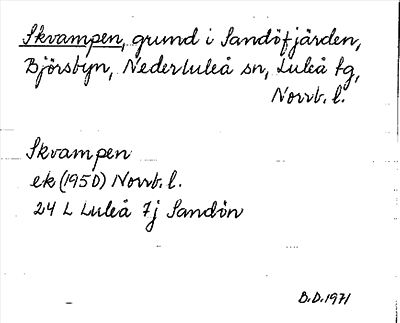 Skvampen, grund i Sandöfjärden,
Björsbyn, Nederluleå sn, Luleå tg,
Norrb. l.
Skvampen
ek (1950) Norrb. l.
24 L Luleå 7j Sandön
B.D. 1971